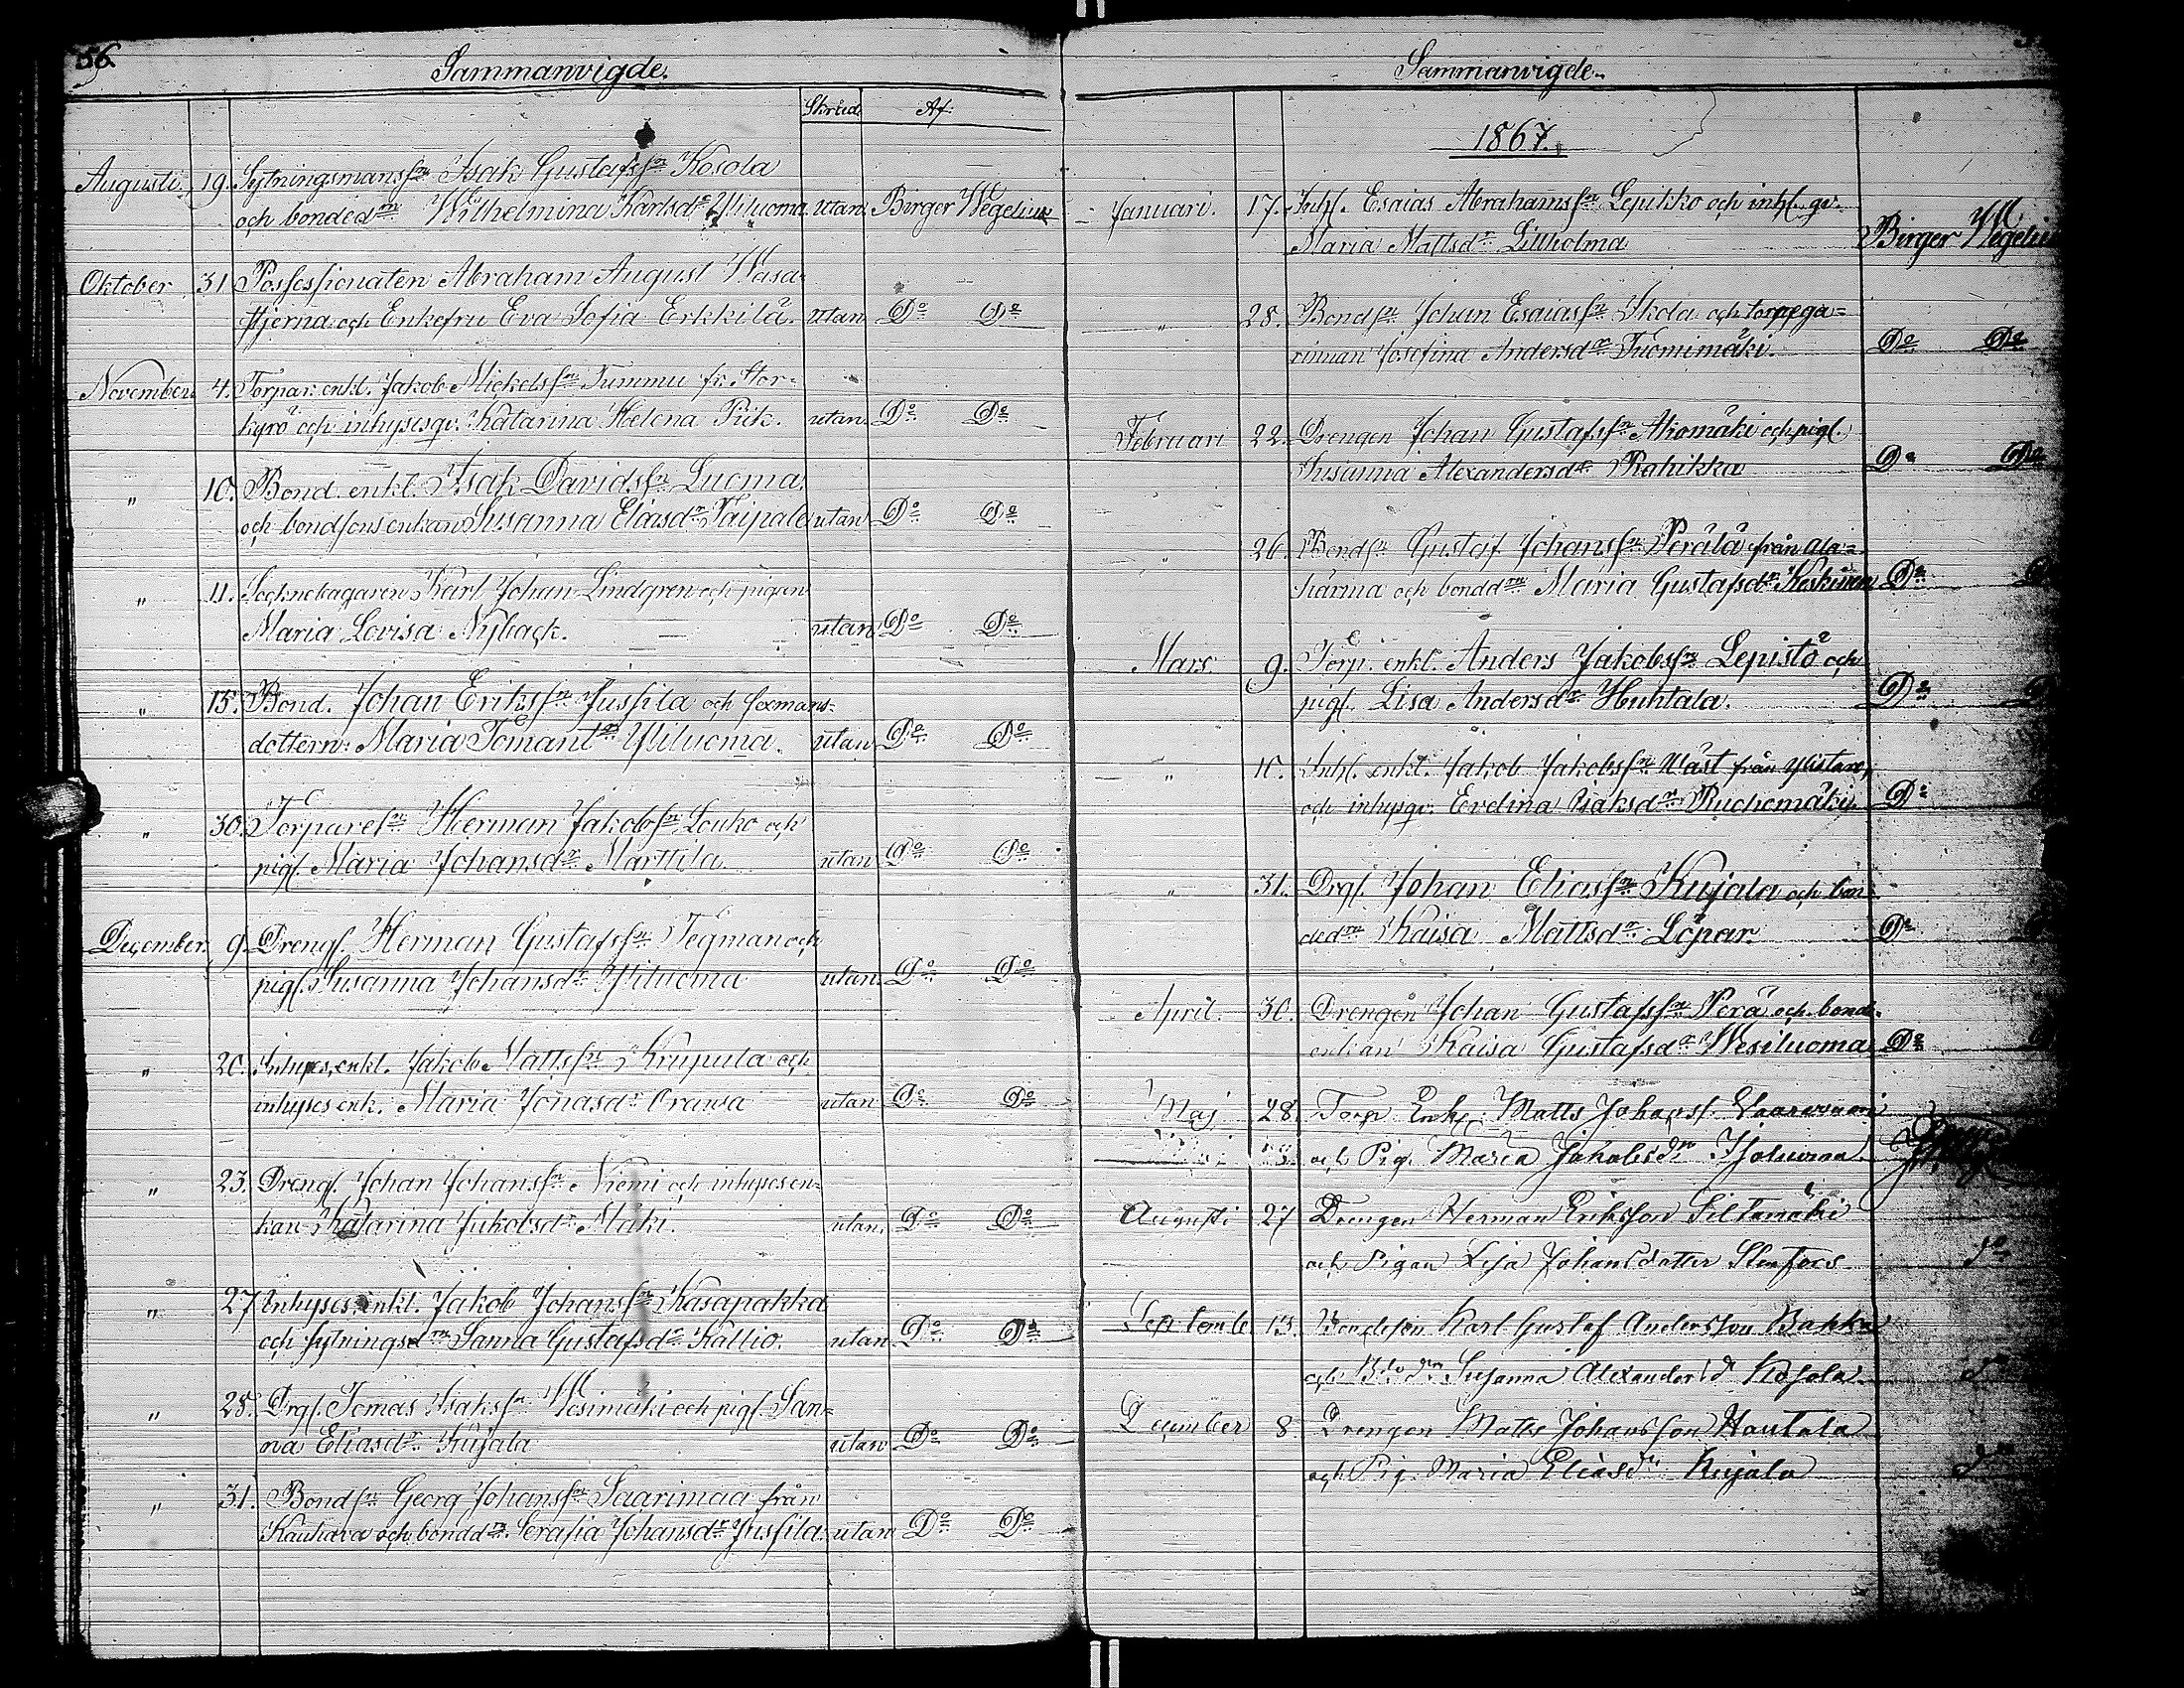 56.
Sammanvigde.
Skrud. Af.
Augusti. 19. Sytningsmanssn Isak Gustafssn Kosola
och bondedrn Wilhelmina Karlsdr Yliluoma. utan. Birger Wegelius
Oktober 31 Possessionaten Abraham August Wasa-
stjerna och Enkefru Eva Sofia Erkkilä. utan Do Do
November. 4. Torpar. enkl. Jakob Mickelssn Tummu fr. Stor-
kyrö och inhysesqv. Katarina Helena Piik. utan. Do Do
" 10. Bond. enkl. Isak Davidssn Luoma
och bondsons enkan Susanna Eliasdr Taipale utan Do Do
" 11. Socknebagaren Karl Johan Lindgren och pigan
Maria Lovisa Nyback. utan Do Do
" 15. Bond. Johan Erikssn Jussila och sexmans-
dottern Maria Tomasdr Yliluoma. utan Do Do
" 30. Torparesn Herman Jakobssn Louko och
pigs. Maria Johansdr Marttila. utan Do Do
December. 9. Drengs. Herman Gustafssn Tegman och
pigs. Susanna Johansdr Yliluoma utan. Do Do
" 20. Inhyses enkl. Jakob Mattssn Krupula och
inhyses enk. Maria Jonasdr Orawa utan Do Do
" 23. Drengs. Johan Johanssn Niemi och inhyses en-
kan Katarina Jakobsdr Mäki. utan. Do Do
" 27. Inhyses. enkl. Jakob Johanssn Kasapakka
och sytningsdrn Sanna Gustafsdr Kallio. utan Do Do
" 28. Drgs. Tomas Isakssn Wesimäki och pigs. San-
na Eliasdr Kujala utan Do Do
" 31. Bondsn Georg Johanssn Saarimaa från
Kauhava och bonddrn Serafia Johansdr Jussila. utan Do Do
Sammanvigde.
1867.
Januari. 17. Inhs. Esaias Abrahamssn Lepikko och inhs. qv.
Maria Mattsdr Lillholma Birger Wegelius
" 28. Bondsn Johan Esaiassn Ikola och torpega-
rinnan Josefina Andersdr Tuomimäki. Do Do
Februari 22. Drengen Johan Gustafssn Ahomäki och pigs.
Susanna Alexandersdr Rahikka Do Do
" 26. Bondsn Gustaf Johanssn Perälä från Ala-
härmä och bonddrn Maria Gustafsdr Keskinen Do
Mars. 9. Torp. enkl. Anders Jakobssn Lepistö och
pigs. Lisa Andersdr Huhtala. Do
" 10. Inhs. enkl. Jakob Jakobssn Wäst från Ylistaro,
och inhysqv. Evelina Isaksdr Ruohomäki Do
" 31. Drgs. Johan Eliassn Kujala och bon-
dedrn Kaisa Mattsdr Löpar. Do
April. 30. Drengen Johan Gustafssn Perä och bond-
enkan Kaisa Gustafsdr Wesiluoma Do
Maj 28. Torp Enkl. Matts Johanss.
och Pig. Maria Jakobsdr
Augusti 27 Drengen Herman Eriksson Siltamäki
och Pigan Lisa Johansdotter Stenfors do
Septemb. 13. Bondeson Karl Gustaf Andersson Bakka
och Bdedrn Susanna Alexandersd Kosola. do
December 8. Drengen Matts Johansson Hautala
och Pig. Maria Eliasdr Kujala do